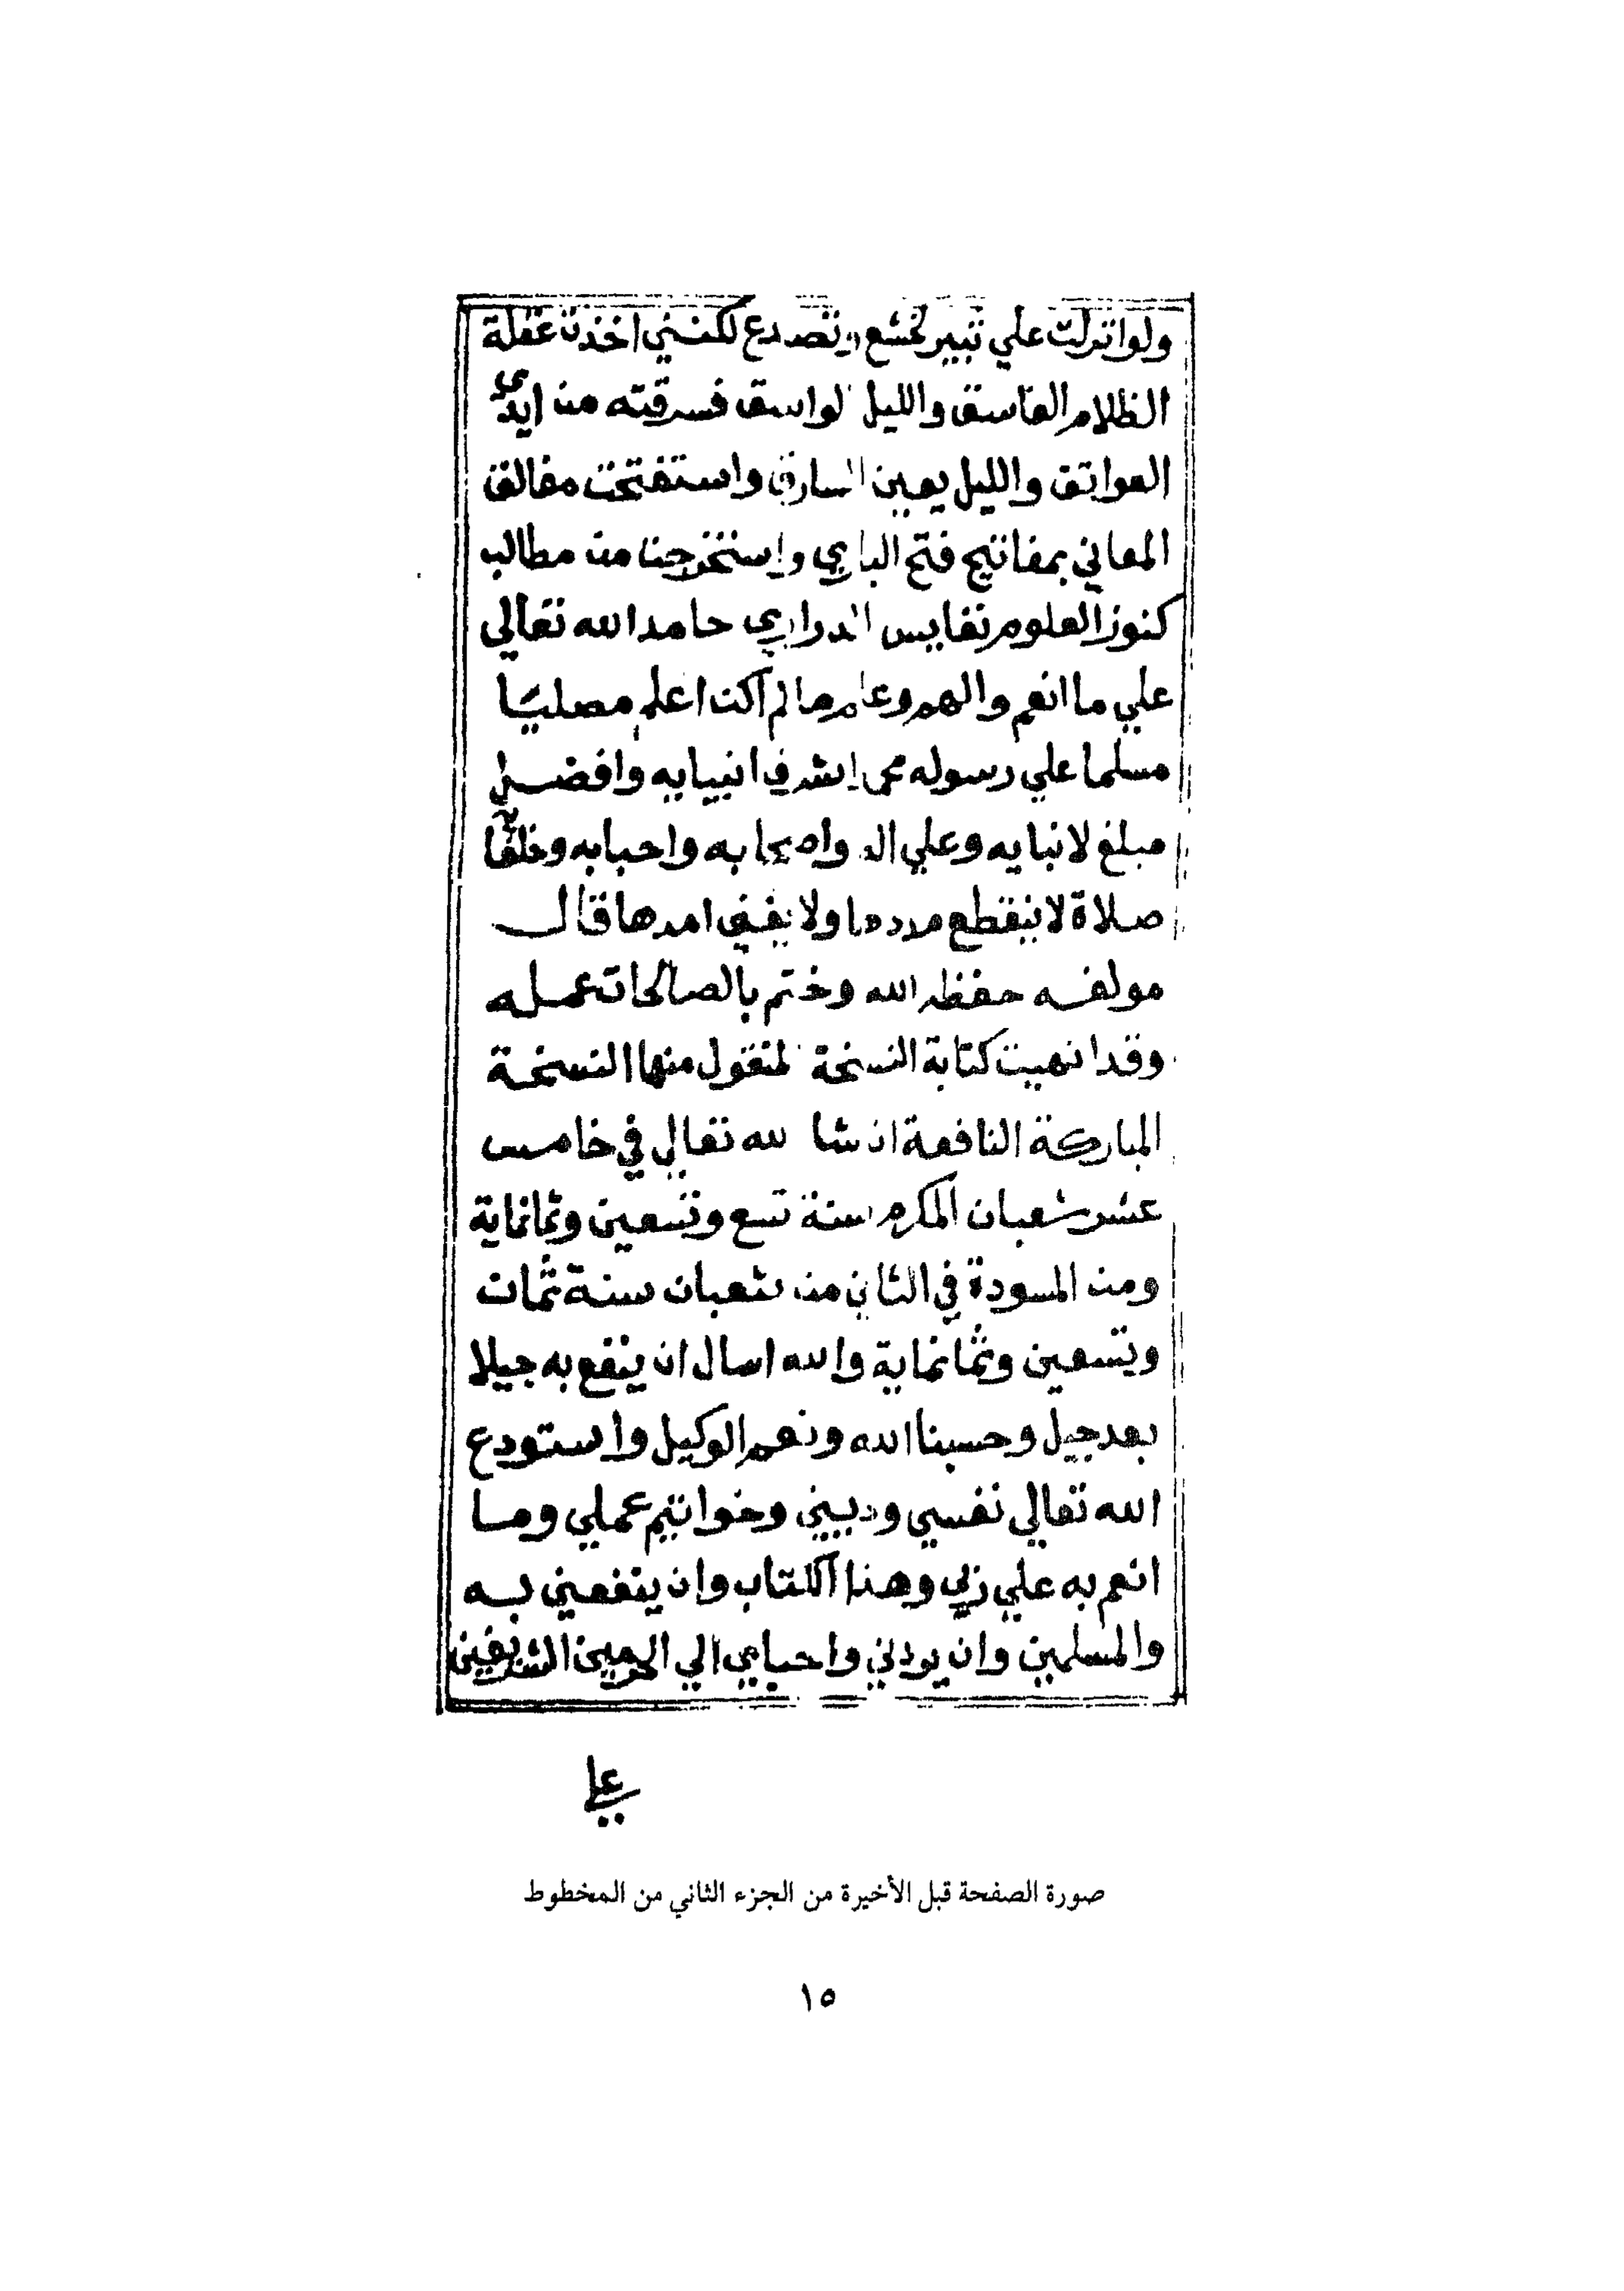 ولو انزلت علي ثبير لخشع وتصدع لكنني اخذت غفلة
الظلام الغاسق والليل الواسق فسرقته من ايدي
العوايق والليل يعين السارق واستفتحت مغالق
المعاني بمفاتيح فتح الباري واستخرجنا من مطالب
كنوز العلوم نفايس الدراري حامدا لله تعالي
علي ما انعم والهم وعلم ما لم اكن اعلم مصليا
مسلما علي رسوله محمد اشرف انبيايه وافضل
مبلغ لانبايه وعلي اله واصحابه واحبابه وخلفايه
صلاة لا ينقطع مددها ولا يفني امدها قال
مولفه حفظه الله وختم بالصالحات عمله
وقد انهيت كتابة النسخة المنقول منها النسخة
المباركة النافعة ان شا الله تعالي في خامس
عشر شعبان المكرم سنة تسع وتسعين وثمانماية
ومن المسودة في الثاني من شعبان سنة ثمان
وتسعين وثمانماية والله اسال ان ينفع به جيلا
بعد جيل وحسبنا الله ونعم الوكيل واستودع
الله تعالي نفسي وديني وخواتيم عملي وما
انعم به علي ربي وهذا الكتاب وان ينفعني به
والمسلمين وان يردني واحبابي الي الحرمين الشريفين
علي
صورة الصفحة قبل الأخيرة من الجزء الثاني من المخطوط
١٥